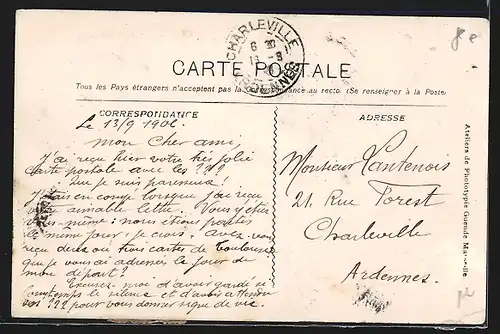 CHARLEVILLE
CARTE POSTALE
Tous les Pays étrangers n'acceptent pas la Correspondance au recto. (Se renseigner à la Poste)
CORRESPONDANCE
Le 13/9 1906.
Mon cher ami,
J'ai reçu hier votre très jolie
Carte postale avec les ???
que je suis paresseux!
J'étais en congé lorsque j'ai reçu
votre aimable lettre. Vous y étiez
nous étions partis
le même jour je crois. Avez-vous
reçu deux ou trois cartes de Toulouse
que je vous ai adressées le jour de
mon départ?
Excusez-moi d'avoir gardé si
longtemps le silence et d'avoir attendu
vos ??? pour vous donner signe de vie.
ADRESSE
Monsieur Lantenois
21. Rue Forest
Charleville
Ardennes.
Ateliers de Phototypie Guende Marseille